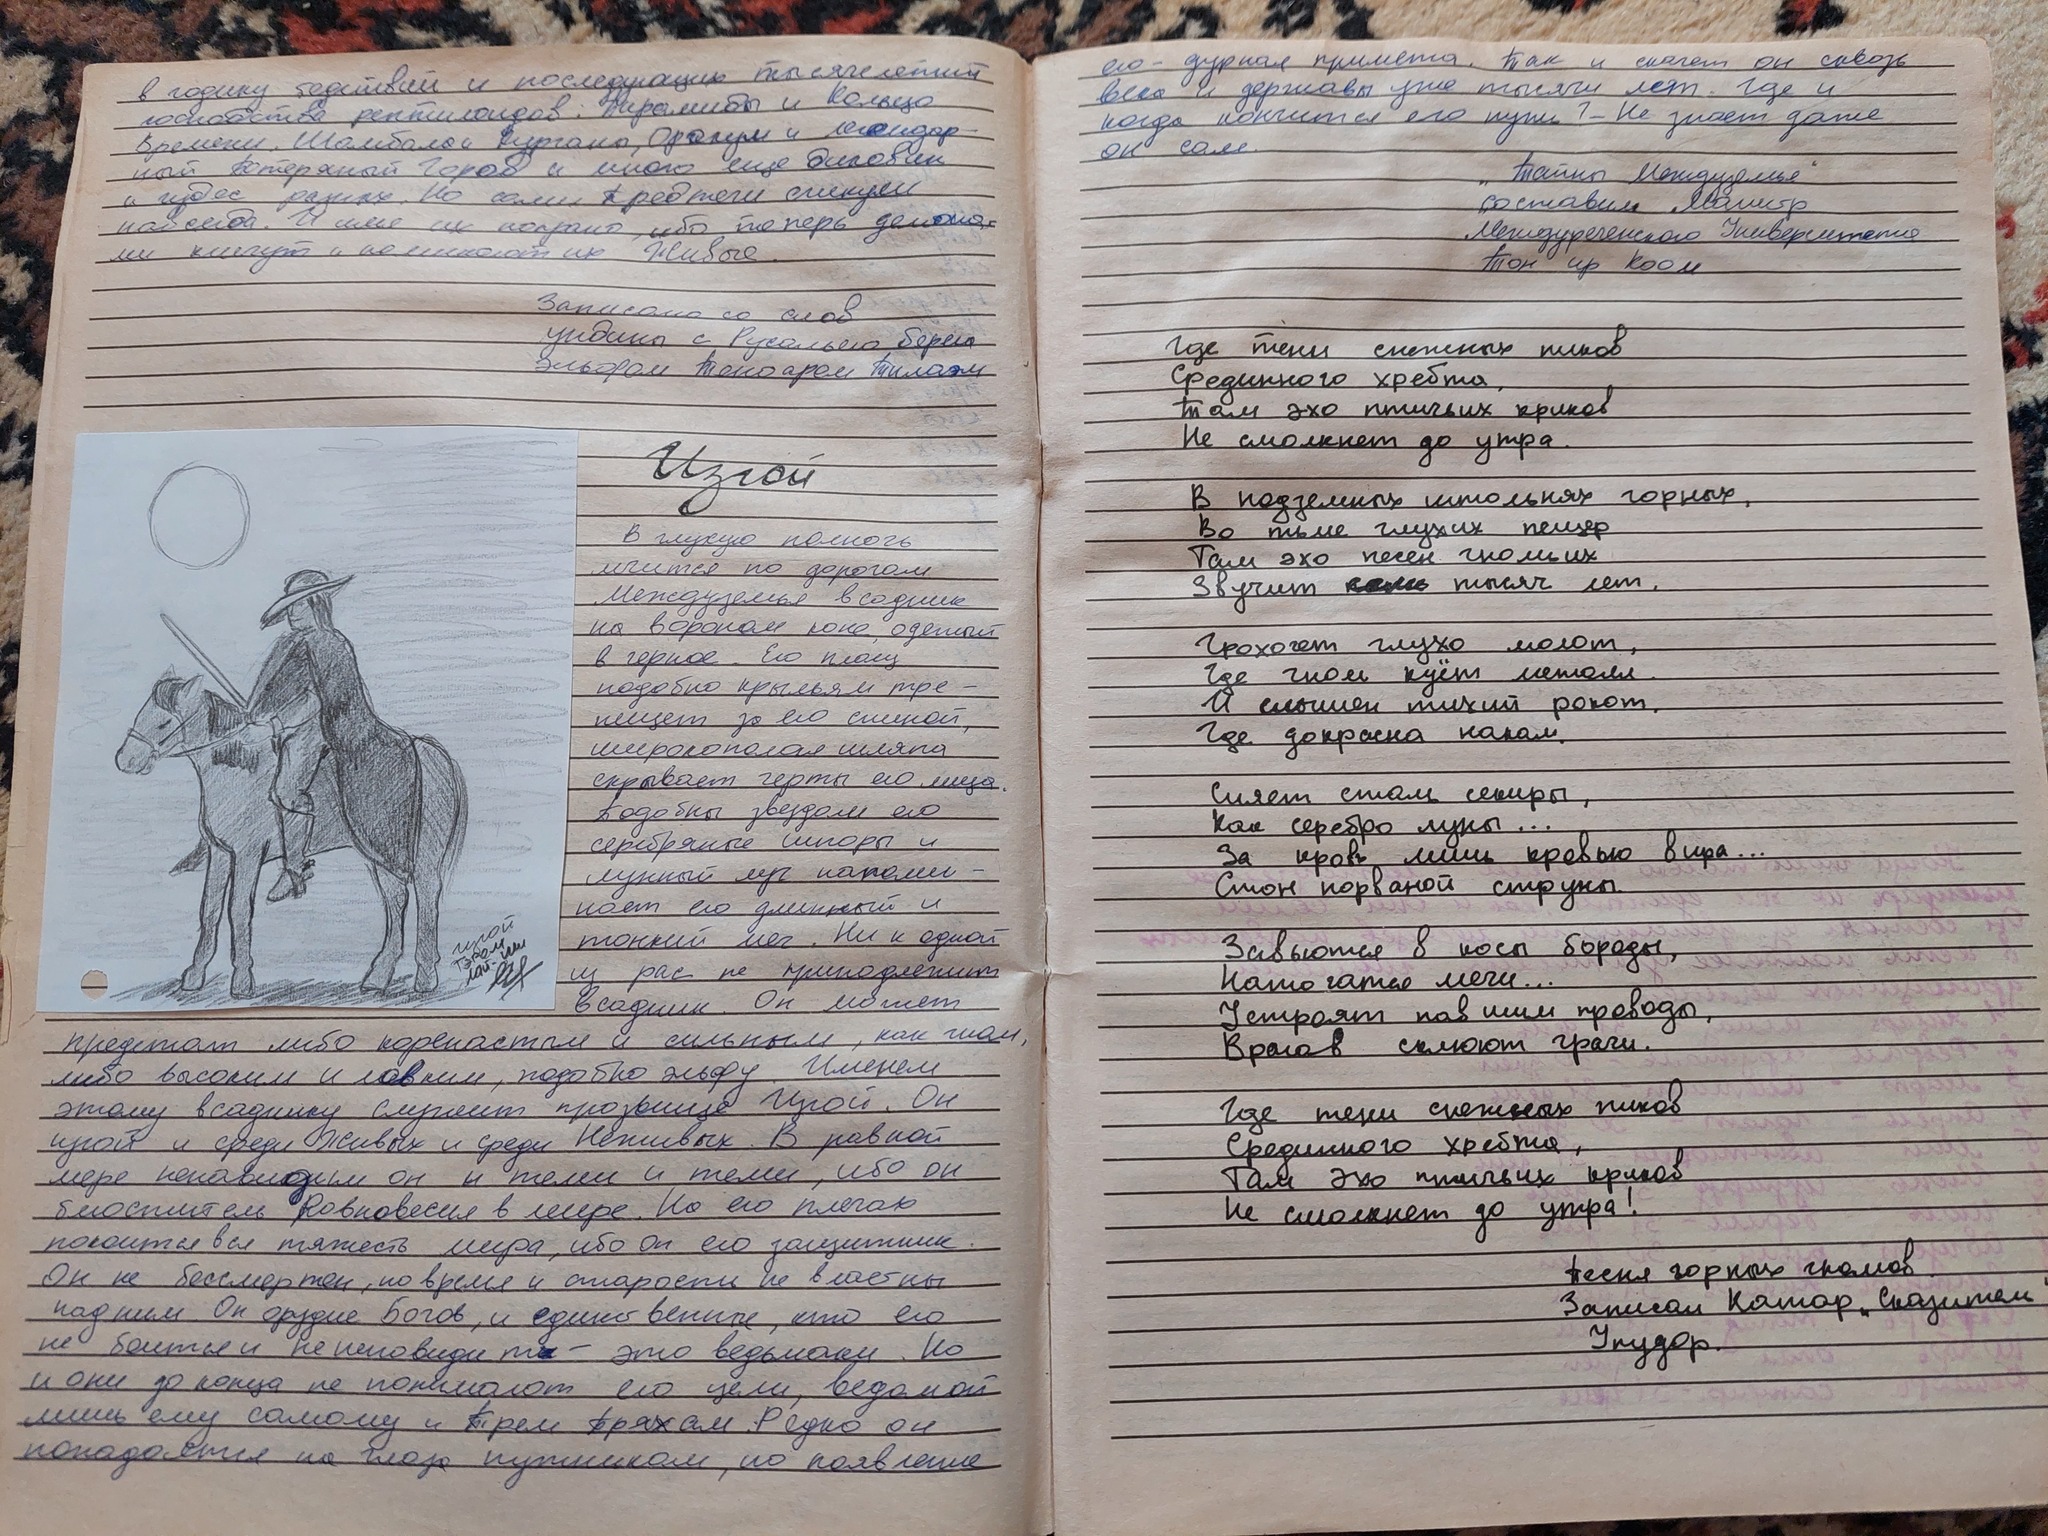 в годину бедствий и последующих тысячелетий
господства рептилоидов: Пирамиды и Кольцо
Времени, Шамбала и Курганы, Оракул и легендар-
ный Потерянный Город и много еще диковин
и чудес разных. Но сами Предтечи сгинули
навсегда. И имя их попрано, ибо теперь демона-
ми кличут и поминают их Живые.
Записано со слов
ундины с Русальего берега
эльфом Теноаром Тилаэм
Изгой
В глухую полночь
мчится по дорогам
Междуземья всадник
на вороном коне, одетый
в черное. Его плащ
подобно крыльям тре-
пещет за его спиной,
широкополая шляпа
скрывает черты его лица.
Подобны звездам его
серебряные шпоры и
лунный луч напоми-
нает его длинный и
тонкий меч. Ни к одной
из рас не принадлежит
всадник. Он может
предстать либо коренастым и сильным, как гном,
либо высоким и ловким, подобно эльфу. Именем
этому всаднику служит прозвище Изгой. Он
изгой и среди Живых и среди Неживых. В равной
мере ненавидим он и теми и теми, ибо он
блюститель Равновесия в мире. На его плечах
покоится вся тяжесть мира, ибо он его защитник.
Он не бессмертен, но время и старость не властны
над ним. Он орудие Богов, и единственные, кто его
не боится и не ненавидит – это ведьмаки. Но
и они до конца не понимают его цели, ведомой
лишь ему самому и Трем Пряхам. Редко он
попадается на глаза путникам, но появление
изгой
его – дурная примета. Так и скачет он сквозь
века и державы уже тысячи лет. Где и
когда кончится его путь? – Не знает даже
он сам.
„Тайны Междуземья"
составил Магистр
Междуреченского Университета
Тон ир Коом
Где тени снежных пиков
Срединного хребта,
Там эхо птичьих криков
Не смолкнет до утра.
В подземных штольнях горных,
Во тьме глухих пещер
Там эхо песен гномьих
Звучит тысяч лет.
Грохочет глухо молот,
Где гном куёт металл.
И слышен тихий рокот,
Где докрасна накал.
Сияет сталь секиры,
Как серебро луны...
За кровь лишь кровью вира...
Стон порваной струны.
Завьются в косы бороды,
Наточатся мечи...
Устроят павшим проводы,
Врагов склюют грачи.
Где тени снежных пиков
Срединного хребта,
Там эхо птичьих криков
Не смолкнет до утра!
Песня горных гномов.
Записал Катор „Сказитель"
Унудор.